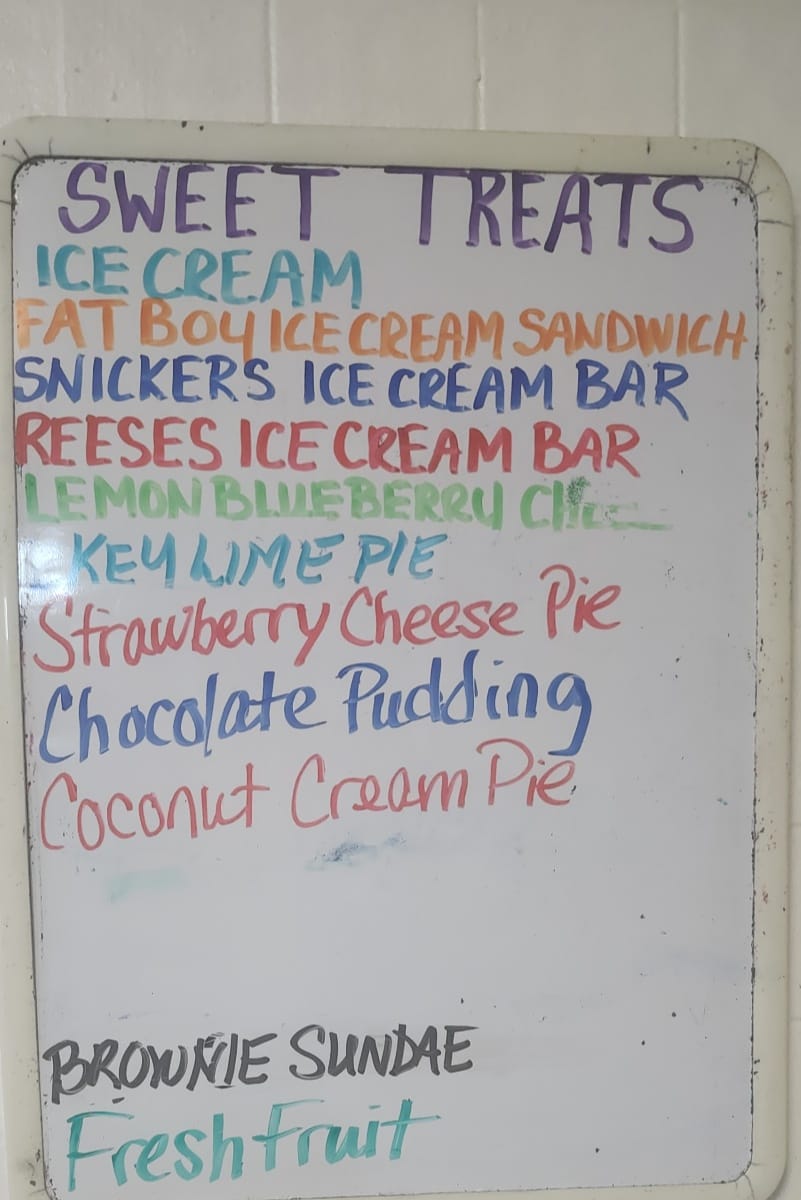 SWEET TREATS
ICE CREAM
FAT BOY ICE CREAM SANDWICH
SNICKERS ICE CREAM BAR
REESES ICE CREAM BAR
LEMON BLUEBERRY
KEY LIME PIE
Strawberry Cheese Pie
Chocolate Pudding
Coconut Cream Pie
BROWNIE SUNDAE
Fresh Fruit